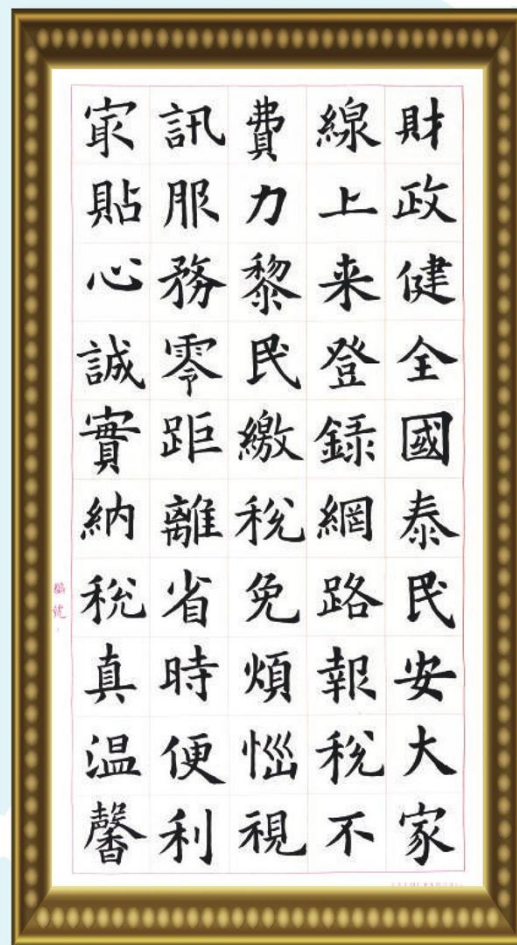 財政健全國泰民安大家
線上来登録網路報稅不
費力黎民繳稅免煩惱視
訊服務零距離省時便利
冣貼心誠實納稅真温馨